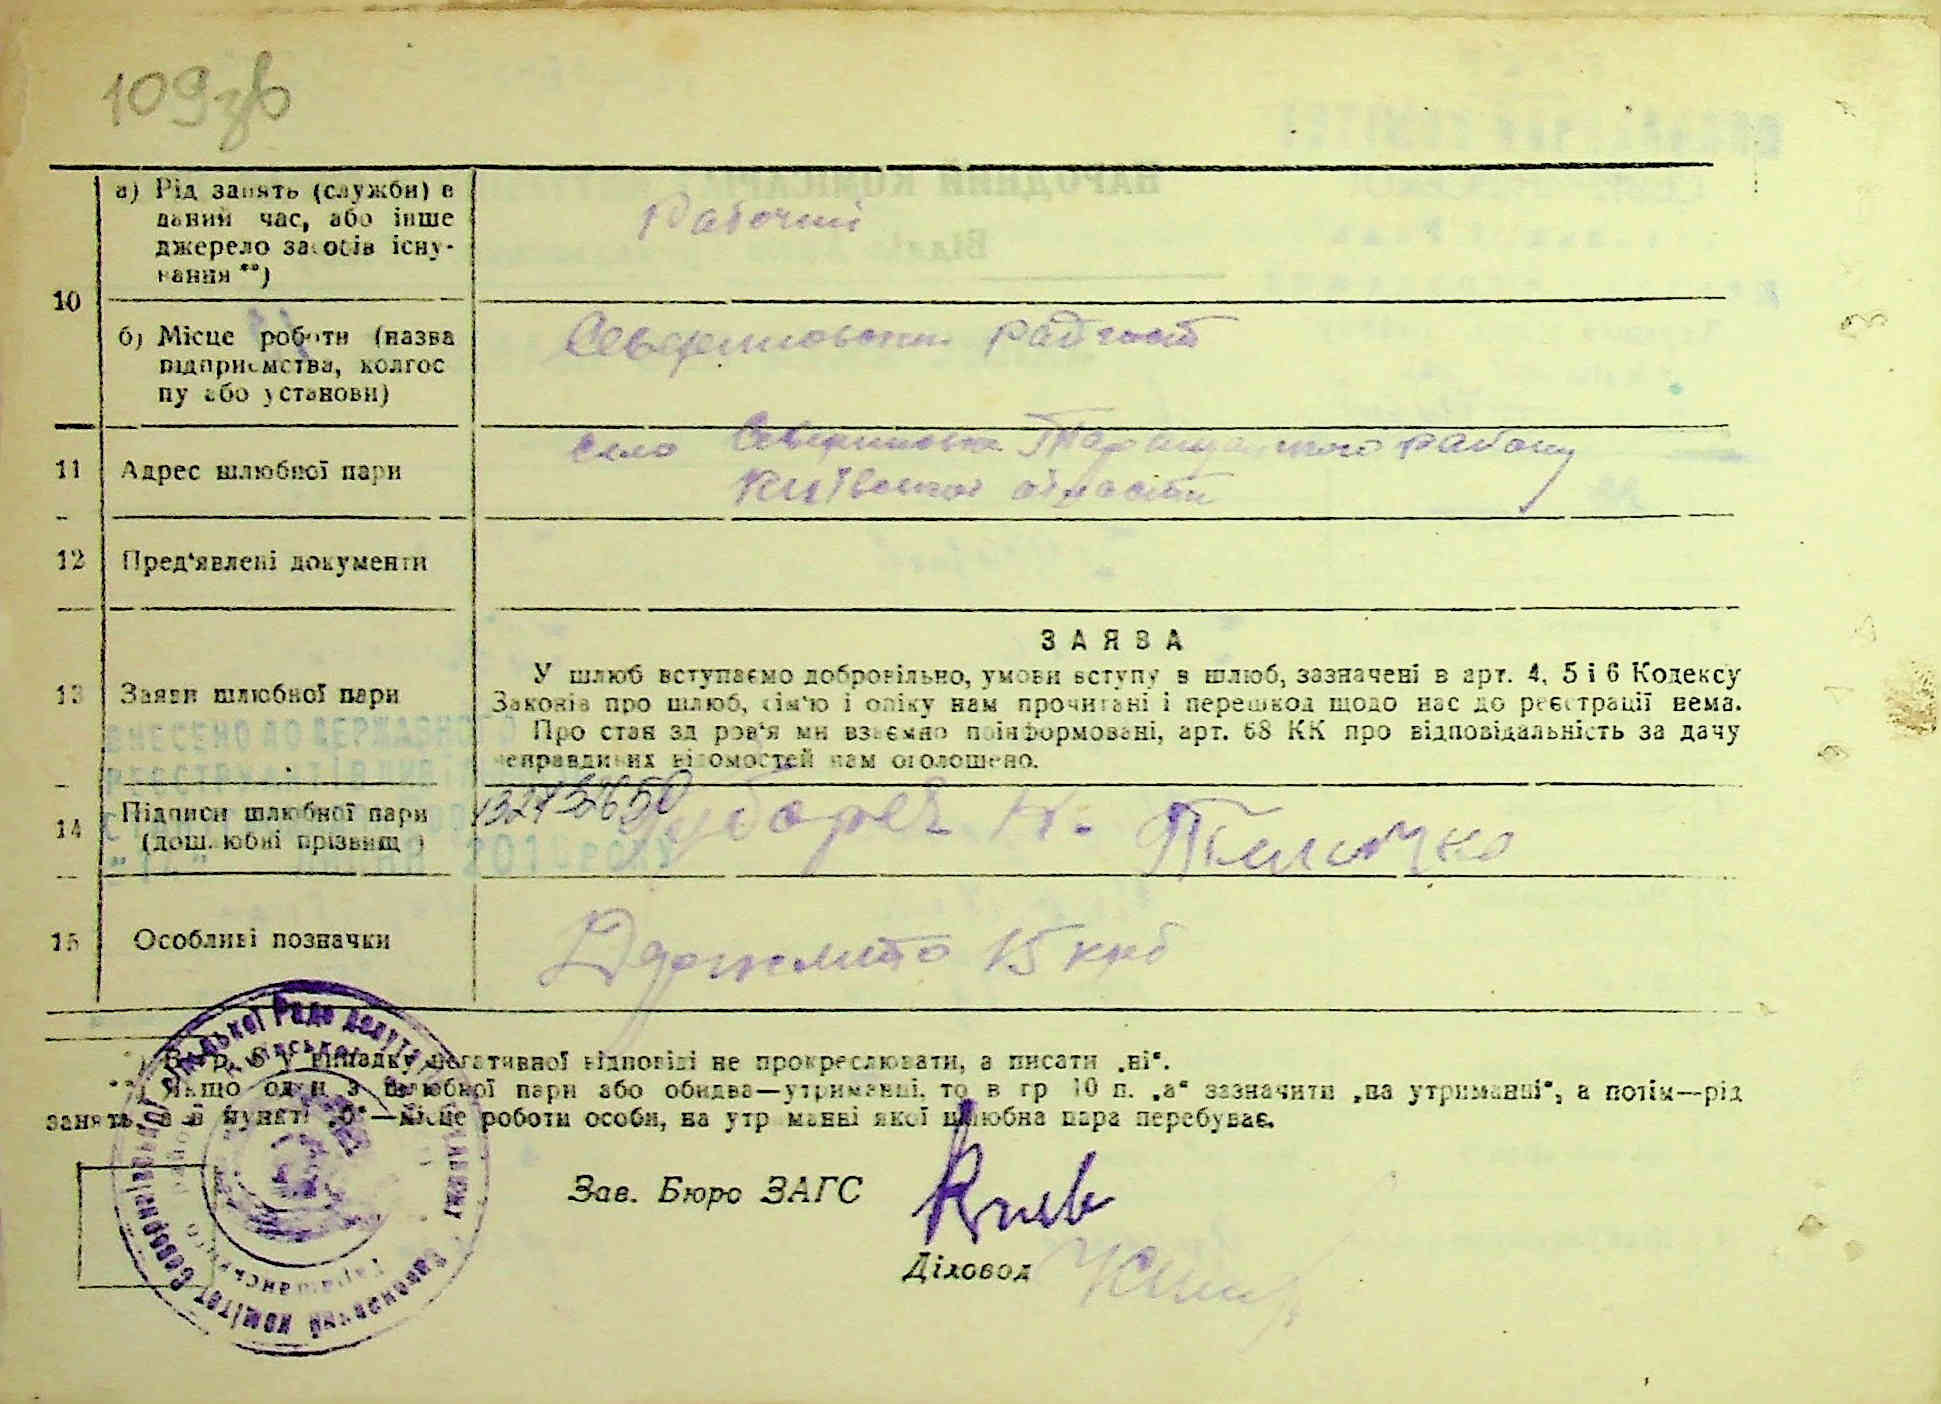 109зв
10
а) Рід занять (служби) в
даний час, або інше
джерело засобів існу-
вання **)
Рабочий
б) Місце роботи (назва
підприємства, колгос
пу або установи)
Севериновский радгосп
11
Адрес шлюбної пари
село Северинівка Таращанського району
Київської області
12
Пред'явлені документи
13
Заяви шлюбної пари
ЗАЯВА
У шлюб вступаємо добровільно, умови вступу в шлюб, зазначені в арт. 4, 5 і 6 Кодексу
Законів про шлюб, сім'ю і опіку нам прочитані і перешкод щодо нас до реєстрації нема.
Про стан здоров'я ми взаємно поінформовані, арт. 68 КК про відповідальність за дачу
неправдивих відомостей нам оголошено.
ВНЕСЕНО ДО ДЕРЖАВНОГО
14
Підписи шлюбної пари
(дошлюбні прізвища)
15
Особливі позначки
Держмито 15 крб
*) В гр. 6 у випадку негативної відповіді не прокреслювати, а писати „ні“.
**) Якщо один з шлюбної пари або обидва—утриманці, то в гр 10 п. „а“ зазначити „на утриманні“, а потім—рід
занять, а в пункті „б“—місце роботи особи, на утриманні якої шлюбна пара перебуває.
Зав. Бюро ЗАГС
Діловод